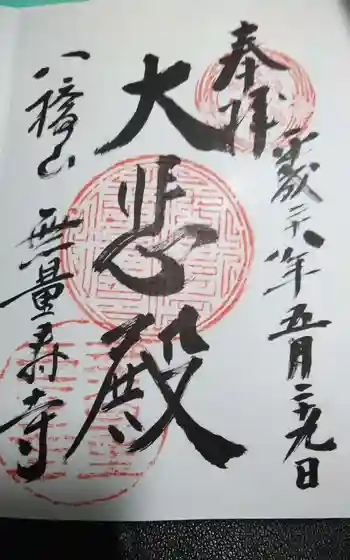 奉拝
平成二十八年五月二十九日
大悲殿
八橋山 無量寿寺